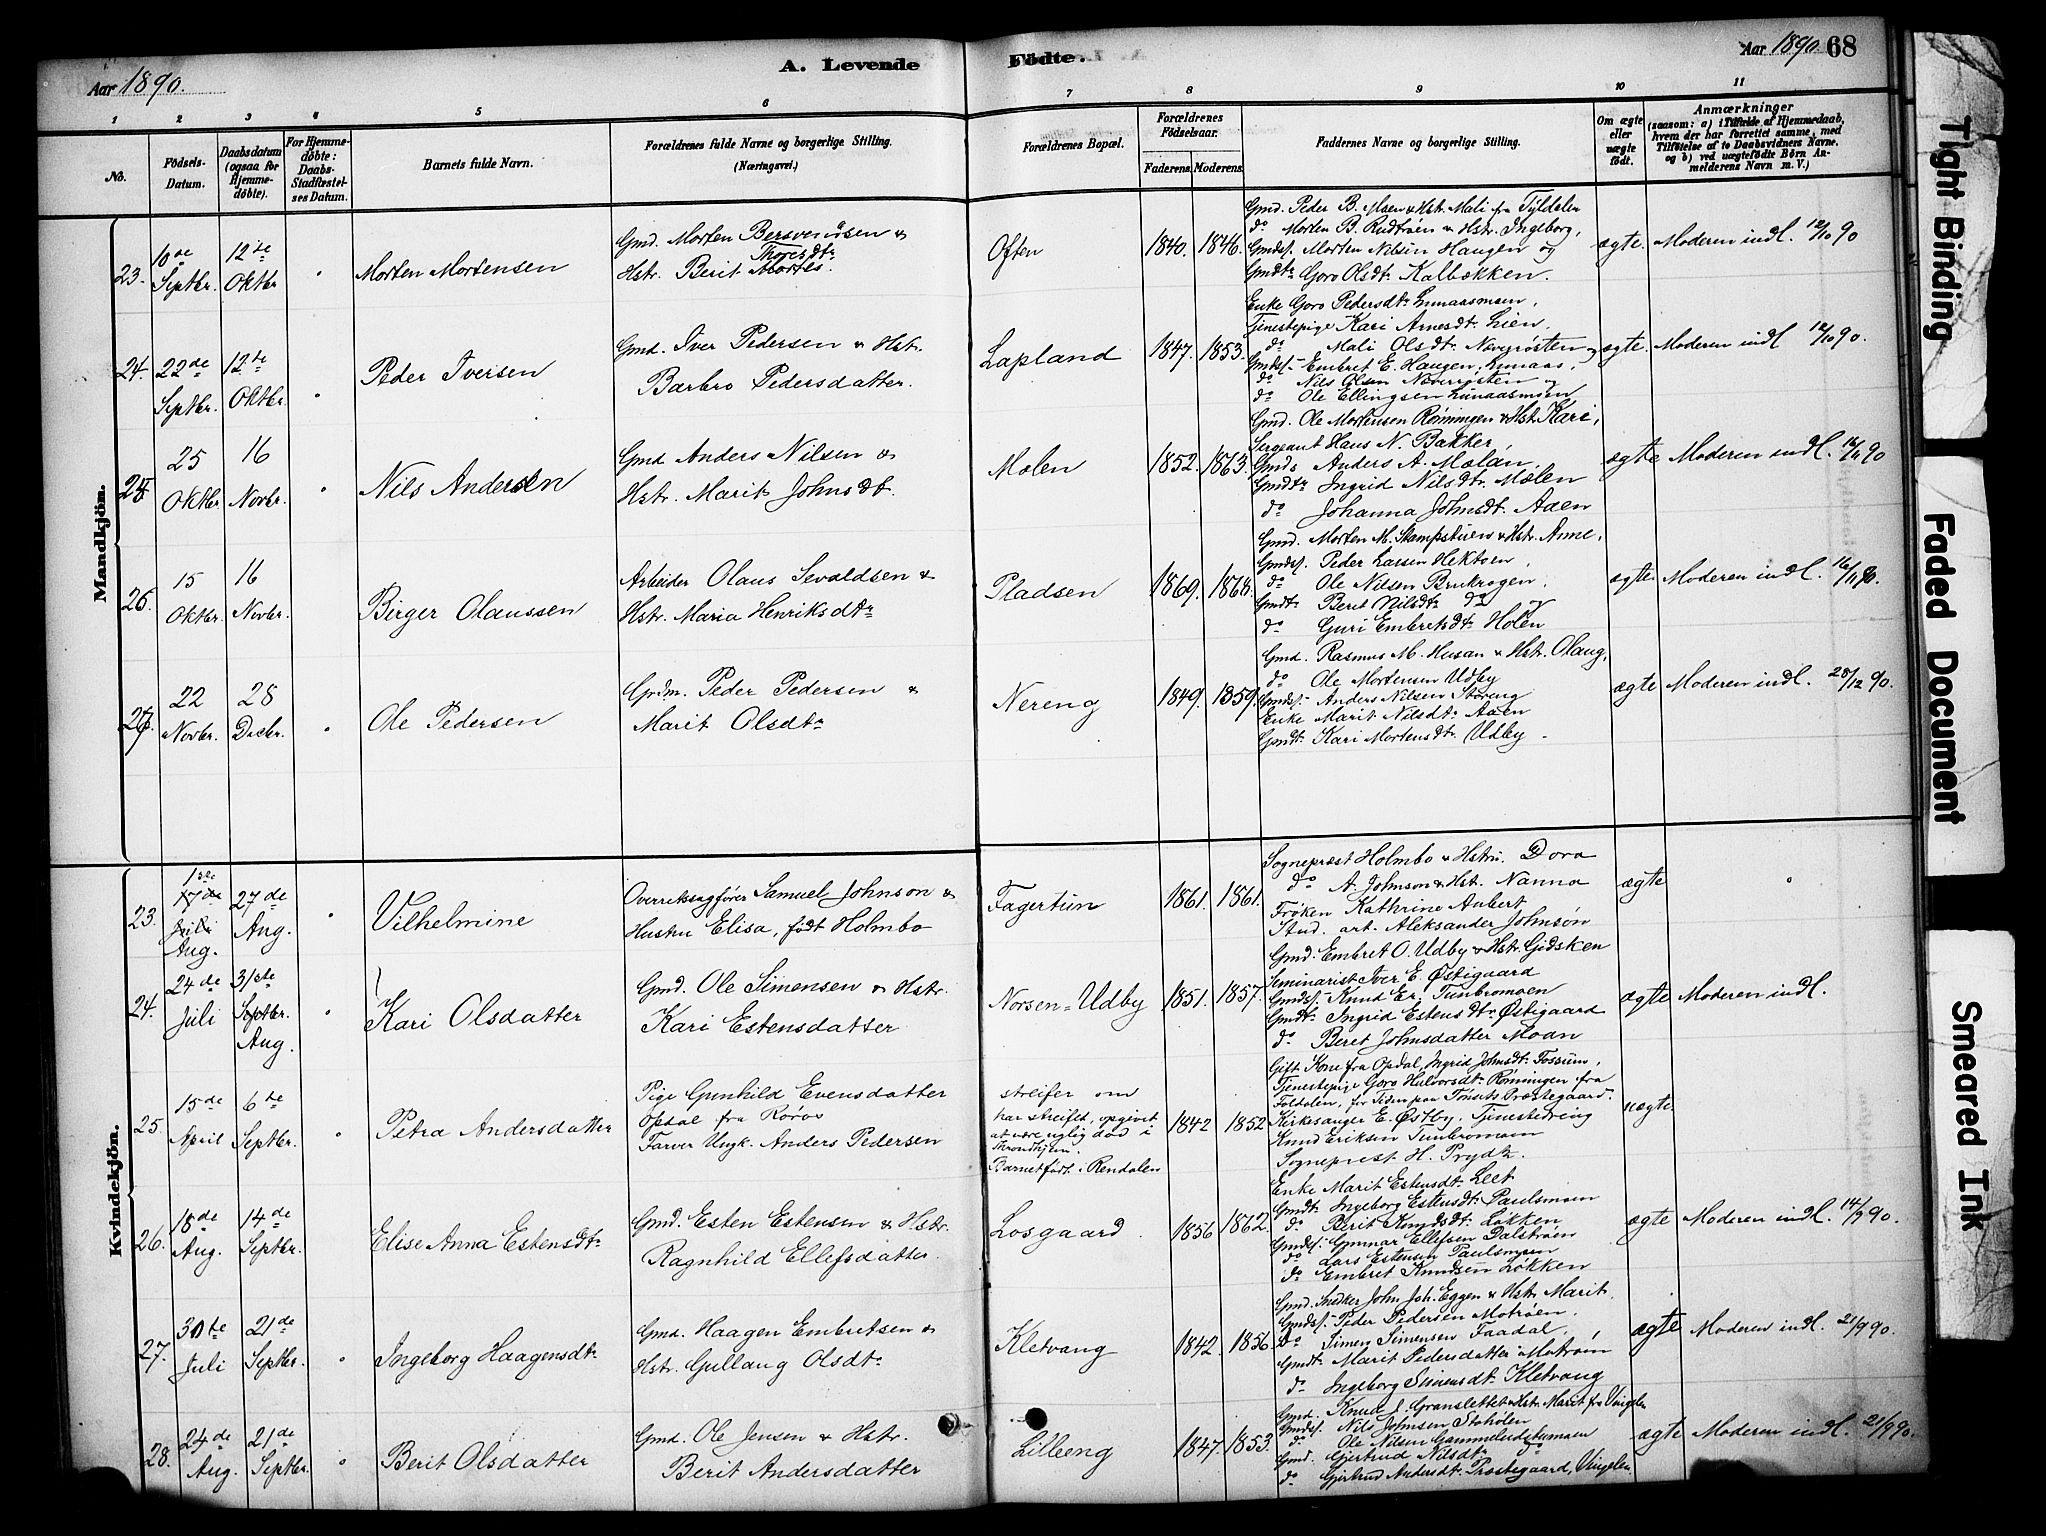 Aar 1890.
A. Levende
Födte.
Aar 1890. 68
1 2 3 4 5 6 7 8 9 10 11
No.
Födsels-Datum.
Daabsdatum (ogsaa for Hjemmedöbte).
For Hjemmedöbte: Daabs-Stadfæstelses Datum.
Barnets fulde Navn.
Forældrenes fulde Navne og borgerlige Stilling.
(Næringsvei.)
Forældrenes Bopæl.
Forældrenes Födselsaar.
Faderens. Moderens.
Faddernes Navne og borgerlige Stilling.
Om ægte eller uægte födt.
Anmærkninger
(saasom: a) i Tilfælde af Hjemmedaab, hvem der har forrettet samme, med Tilföielse af to Daabsvidners Navne, og b) ved uægtefödte Börn Anmelderens Navn m. V.)
Mandkjön.
23. 10de Septbr. 12te Oktbr " Morten Mortensen
Gmd. Morten Bersvendsen &
Hstr. Berit Mortes. Thoresdtr
Often 1840. 1846.
Gmd. Peder B. Moen & Hstr. Mali fra Tyldalen
do Morten B. Rudtrøen & Hstr. Ingeborg,
Gmdsf. Morten Nilsen Haugen og
Gmdtr Goro Olsdtr Kalbækken.
ægte. Moderen indl. 12/10 90
24. 22de Septbr. 12te Oktbr. " Peder Iversen
Gmd. Iver Pedersen & Hstr.
Barbro Pedersdatter.
Lapland 1847. 1853.
Enke Goro Pedersdtr Lunaasmoen,
Tjenestepige Kari Arnesdtr Lien.
do Mali Olsdtr Naverøsten &
Gmdsf. Embret E. Haugen, Lunaas,
do Nils Olsen Næverrøsten &
do Ole Ellingsen Lunaasmoen
ægte. Moderen indl 12/10 90.
25 25 Oktbr. 16 Novbr. " Nils Andersen
Gmd Anders Nilsen &
Hstr. Marit Johnsdt.
Molen 1852. 1863.
Gmd. Ole Mortensen Rønningen & Hstr. Kari,
Sergeant Hans N. Bakker,
Gmds Anders A. Mælan,
Gmdtr Ingrid Nilsdtr. Mælen
do Johanna Johnsdt. Aaen
ægte Moderen indl. 16/11 90
26. 15 Oktbr. 16 Novbr. Birger Olaussen
Arbeider Olaus Sevaldsen &
Hstr. Maria Henriksdtr
Pladsen 1869. 1868.
Gmd. Morten M. Stampstuen & Hstr. Anne,
Gmdsf. Peder Lassen Hektoen,
do Ole Nilsen Brukrogen,
Gmdt. Berit Nilsdtr do
do Guri Embretsdtr Holen
ægte. Moderen indl. 16/11 90.
27. 22 Novbr. 28 Decbr. " Ole Pedersen
Grdm. Peder Pedersen &
Marit Olsdtr
Nereng 1849. 1859.
Gmd. Rasmus M. Husan & Hstr. Olaug,
do Ole Mortensen Udby
Gmdsf. Anders Nilsen Støreng
Enke Marit Nilsdtr Aaen
Gmdt. Kari Mortensdtr Udby.
ægte Moderen indl. 28/12 90.
Kvindekjön.
23. 17de Juli 1ste Aug. 27de Aug. " Vilhelmine
Overretssagfører Samuel Johnson &
Hustru Elisa, født Holmbo
Fagertun 1861. 1861.
Sognepræst Holmbo & Hstru. Dora
do A. Johnson & Hst. Nanna
Frøken Kathrine Aubert
Stud. art. Aleksander Johnsøn
ægte "
24. 24de Juli 31ste Septbr. Aug. " Kari Olsdatter
Gmd. Ole Simensen & Hstr.
Kari Estensdatter
Norsen-Udby 1851. 1857.
Gmd. Embret O. Udby & Hstr. Gidsken
Seminarist Iver E. Østigaard
Gmdsf. Knud Er. Tunbromoen
Gmdtr Ingrid Estensdtr Østigaard
do Beret Johnsdatter Moan
ægte Moderen indl.
25. 15de April 6te Septbr. " Petra Andersdatter
Pige Gunhild Evensdatter
Opdal fra Røros
Farver Ungk. Anders Pedersen
streifer om
har streifet, opgivet
at være nylig død i
Throndhjem.
Barnet født i Rendalen
1842 1852
Gift Kone fra Opdal, Ingrid Johnsdtr Fossum,
Tjenestepige Goro Halvorsdtr Rønningen fra
Foldalen, for Tiden paa Tønsets Præstegaard.
Kirkesanger E. Østby, Tjenestedreng
Knud Eriksen Tunbromoen
Sogneprest H. Prydz.
uægte.
26. 18de Aug. 14de Septbr. " Elise Anna Estensdtr
Gmd. Esten Estensen & Hstr.
Ragnhild Ellefsdatter.
Losgaard. 1856 1862.
Enke Marit Estensdt. Leet
Gmdt. Ingeborg Estensdt. Paulsmoen
do Berit Knudsdt. Løkken
Gmdsf. Gunnar Ellefsen Dalstrøen
do Lars Estensen Paulsmoen
do Embret Knudsen Løkken
ægte Moderen indl. 14/9 90.
27. 30te Juli 21de Septbr. " Ingeborg Haagensdtr
Gmd. Haagen Embretsen &
Hstr. Gullaug Olsdtr
Kletvang 1842. 1856.
Gmd. Snedker John Joh. Eggen & Hstr Marit.
Gmdsf. Peder Pedersen Motrøen,
Do Simen Simensen Faadal,
Gmdt. Marit Pedersdatter Motrøen
do Ingeborg Simensdt. Kletvang
ægte Moderen indl. 21/9 90.
28. 24de Aug. 21de Septbr. " Berit Olsdatter
Gmd. Ole Jensen & Hstr.
Berit Andersdatter
Lilleeng 1847. 1853.
Gmd. Knud J. Granslettet & Hstr. Marit fra Vingelen
Gmdsf. Nils Johnsen Stohølen
do Ole Nilsen Gammeludstumoen
Gmd. Gjertrud Nilsdtr do
do Gjertrud Andersdt. Præstegaard, Vingelen
ægte Moderen indl. 21/9 90.
Tight Binding
Faded Document
Smeared Ink